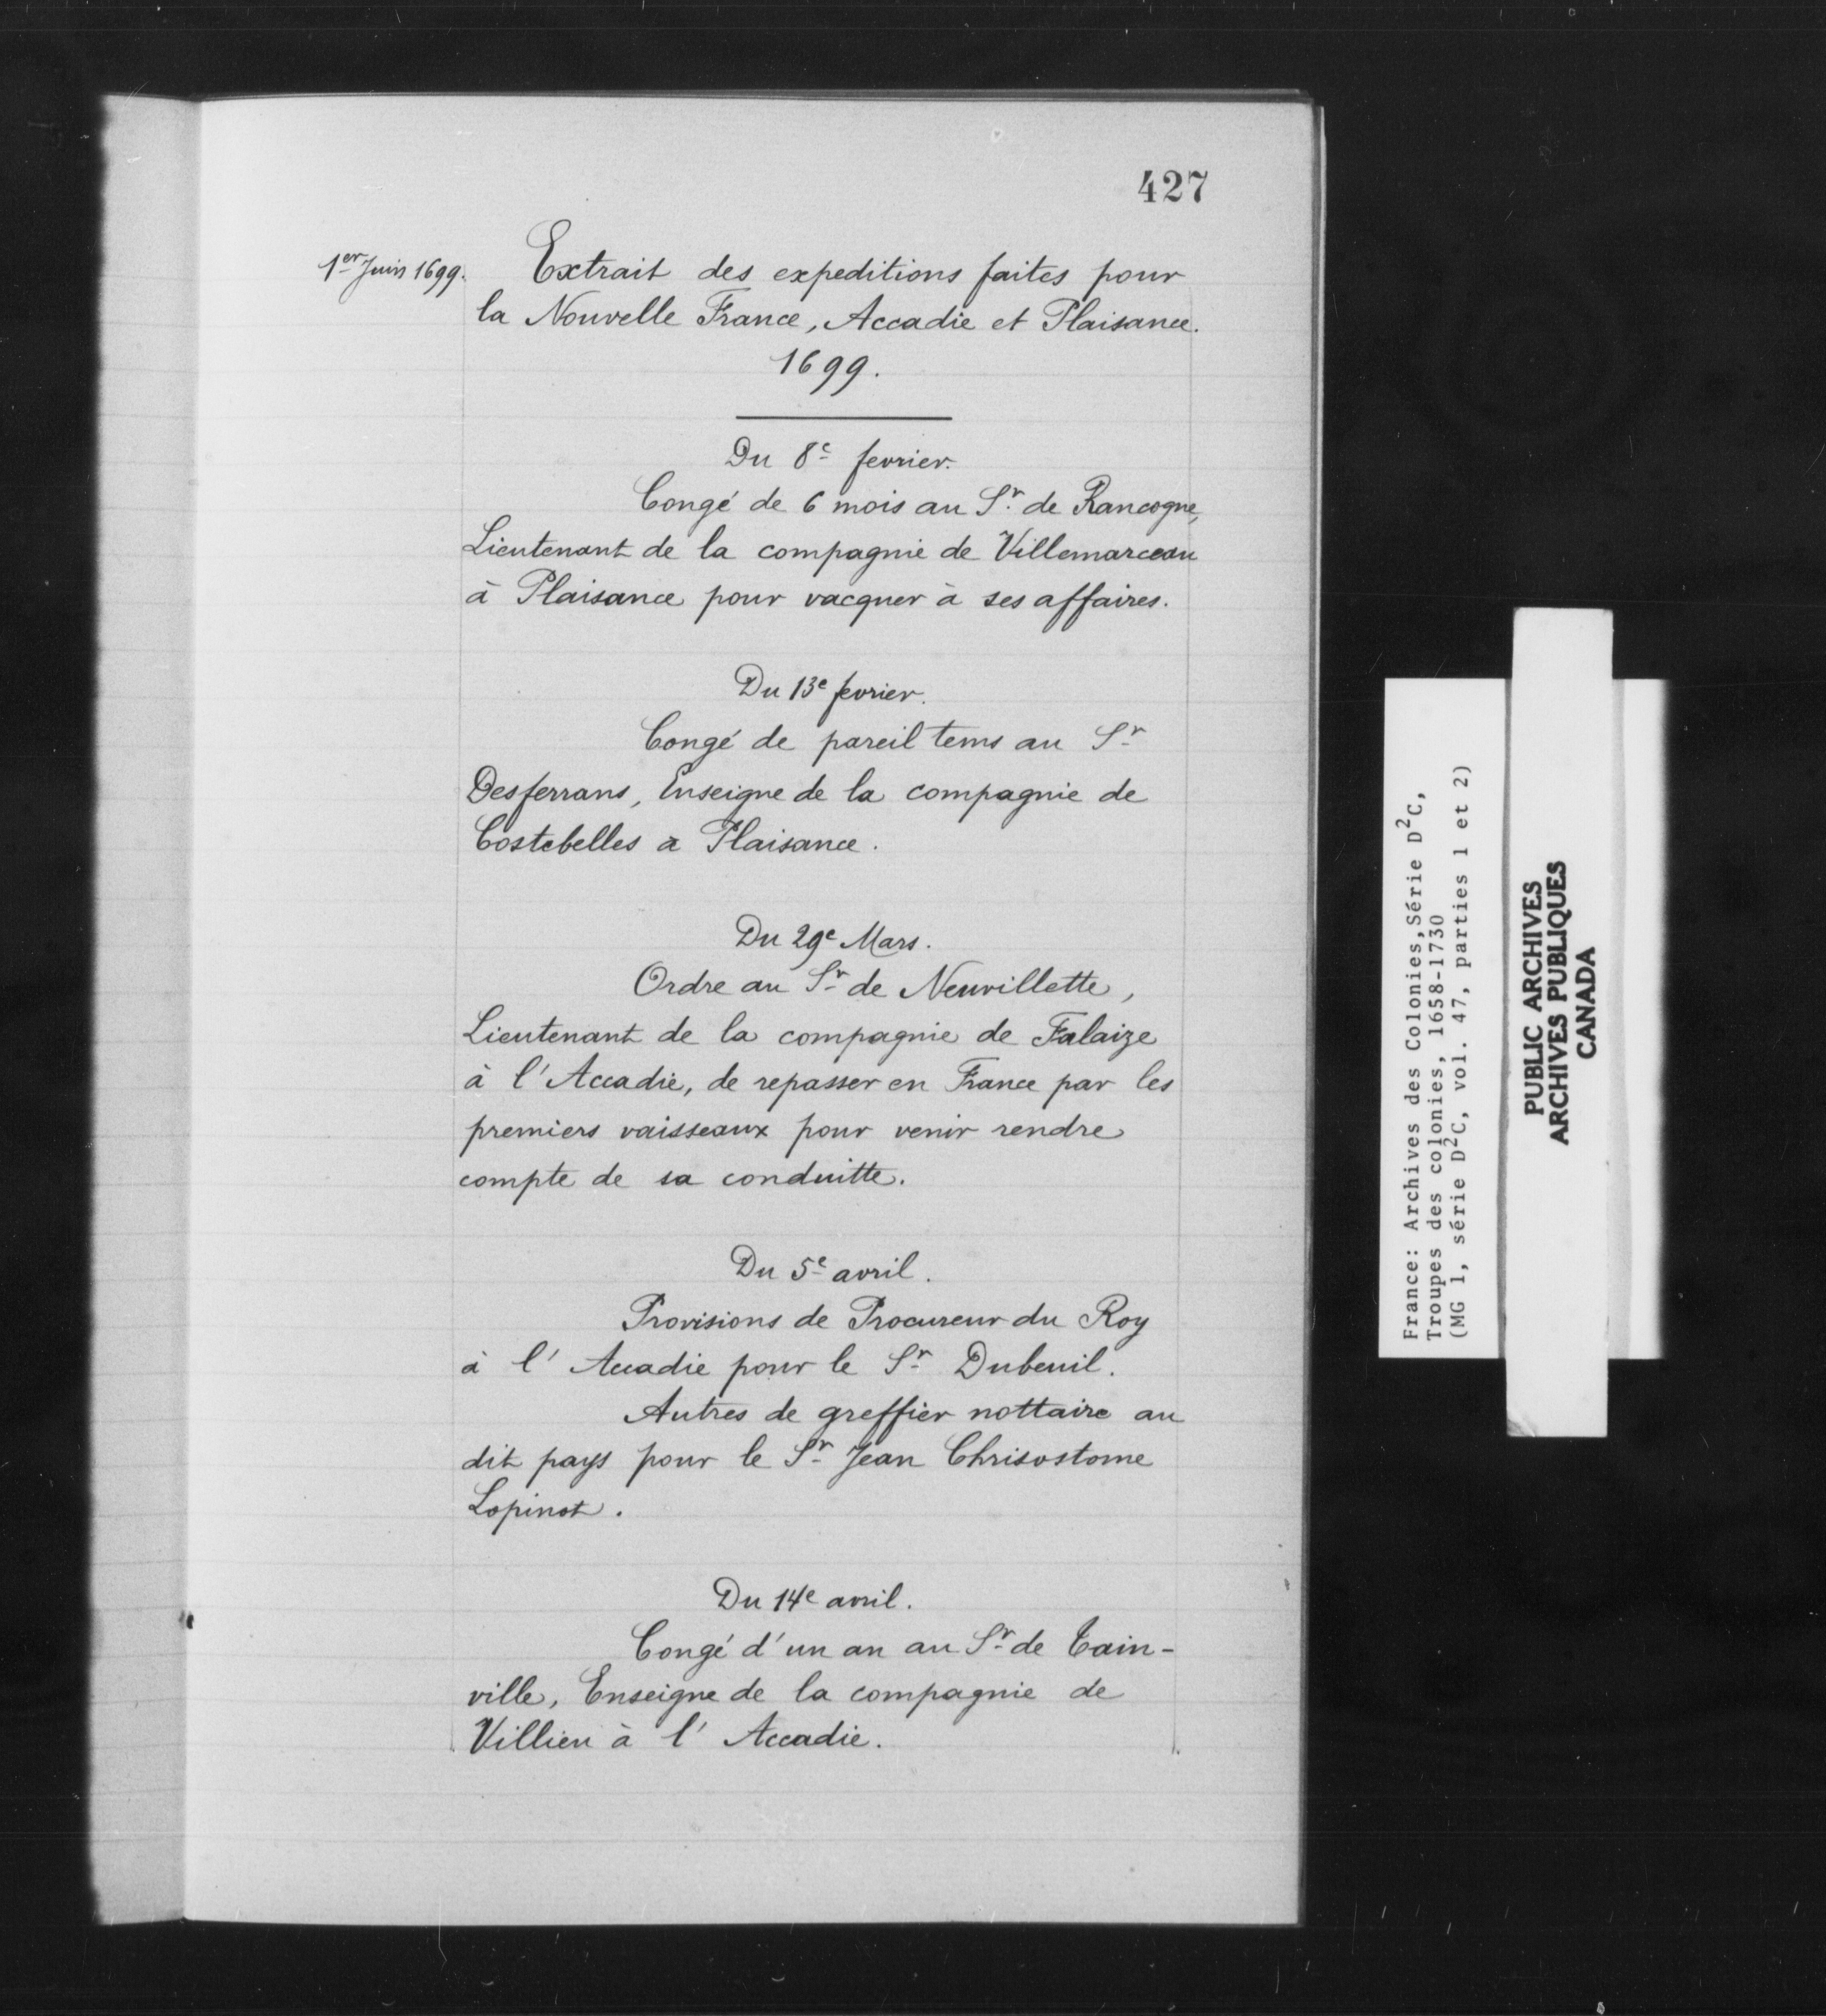 427
1er Juin 1699.
Extrait des expeditions faites pour
la Nouvelle France, Accadie et Plaisance.
1699.
Du 8e fevrier.
Congé de 6 mois au Sr. de Rancogne,
Lieutenant de la compagnie de Villemarceau
à Plaisance pour vacquer à ses affaires.
Du 13e fevrier.
Congé de pareil tems au Sr
Desferrans, Enseigne de la compagnie de
Costebelles a Plaisance.
Du 29e Mars.
Ordre au Sr de Neuvillette,
Lieutenant de la compagnie de Falaize
à l'Accadie, de repasser en France par les
premiers vaisseaux pour venir rendre
compte de sa conduitte.
Du 5e avril.
Provisions de Procureur du Roy
à l'Accadie pour le Sr Dubeuil.
Autres de greffier nottaire au
dit pays pour le Sr Jean Chrisostome
Lopinot.
Du 14e avril.
Congé d'un an au Sr de Tain-
ville, Enseigne de la compagnie de
Villieu à l'Accadie.
France: Archives des Colonies, Série D2C,
Troupes des colonies, 1658-1730
(MG 1, série D2C, vol. 47, parties 1 et 2)
PUBLIC ARCHIVES
ARCHIVES PUBLIQUES
CANADA